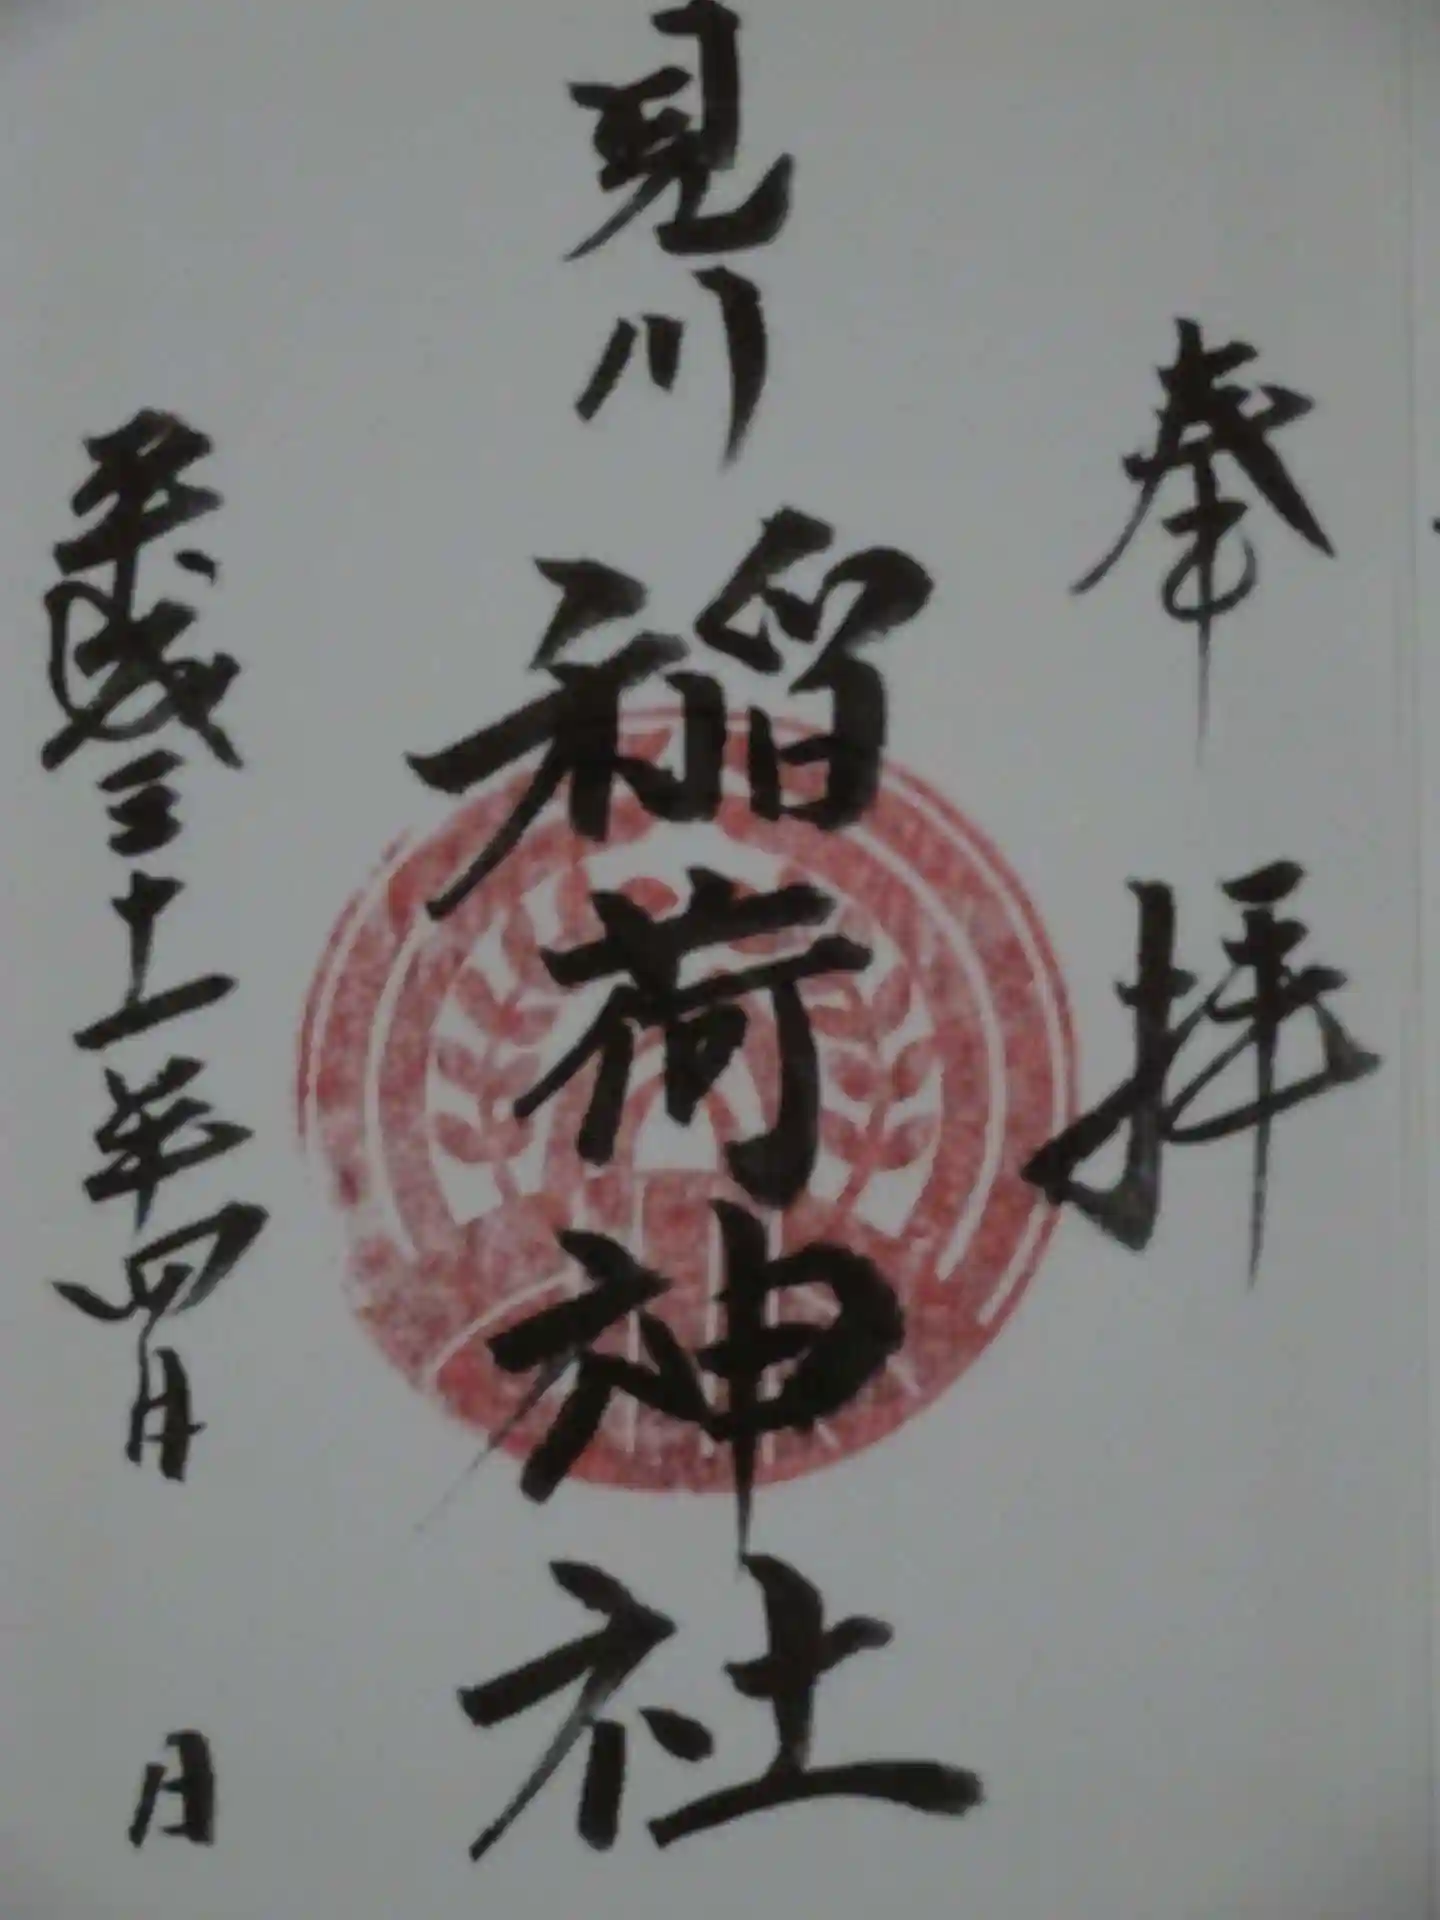 奉拝
見川稲荷神社
平成三十一年四月 日